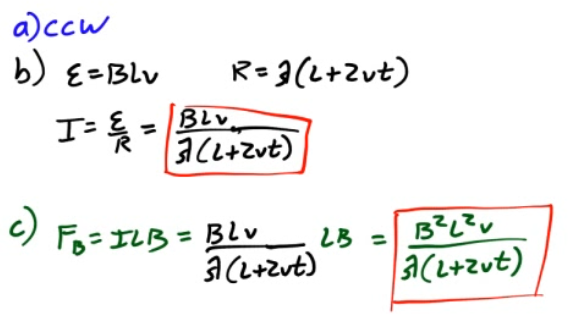 a) CCW
b) ε = BLv R = λ(L+2vt)
I = ε/R = BLv/λ(L+2vt)
c) F_B = ILB = BLv/λ(L+2vt) LB = B²L²v/λ(L+2vt)